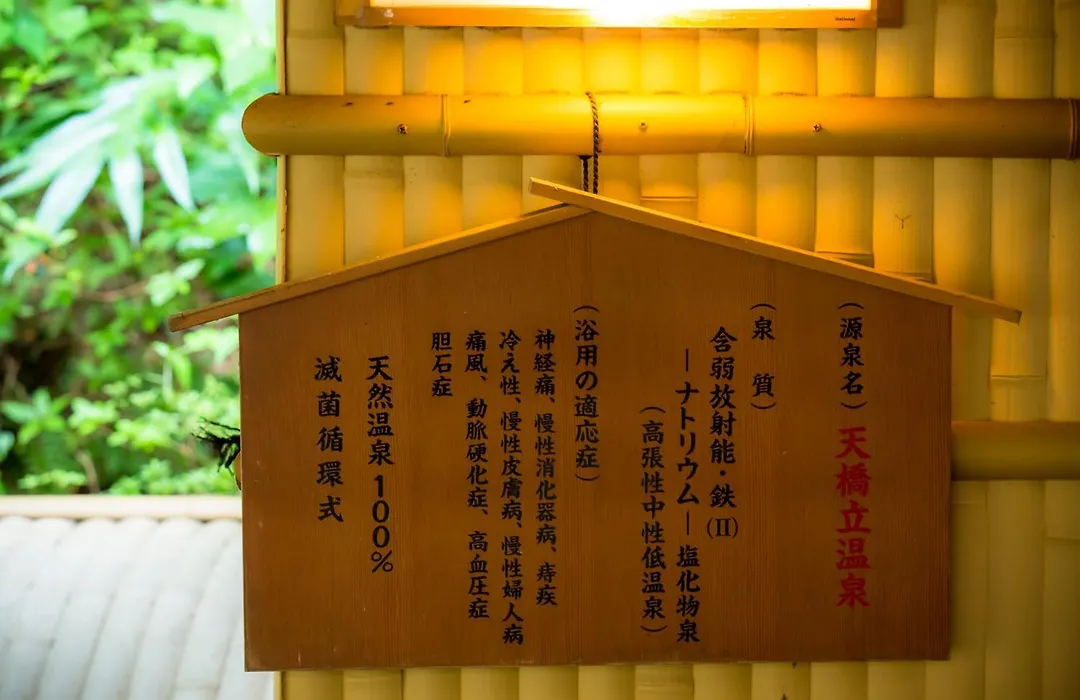 （源泉名）天橋立温泉
（泉 質）
含弱放射能・鉄（Ⅱ）
―ナトリウム―塩化物泉
（高張性中性低温泉）
（浴用の適応症）
神経痛、慢性消化器病、痔疾
冷え性、慢性皮膚病、慢性婦人病
痛風、動脈硬化症、高血圧症
胆石症
天然温泉100%
滅菌循環式